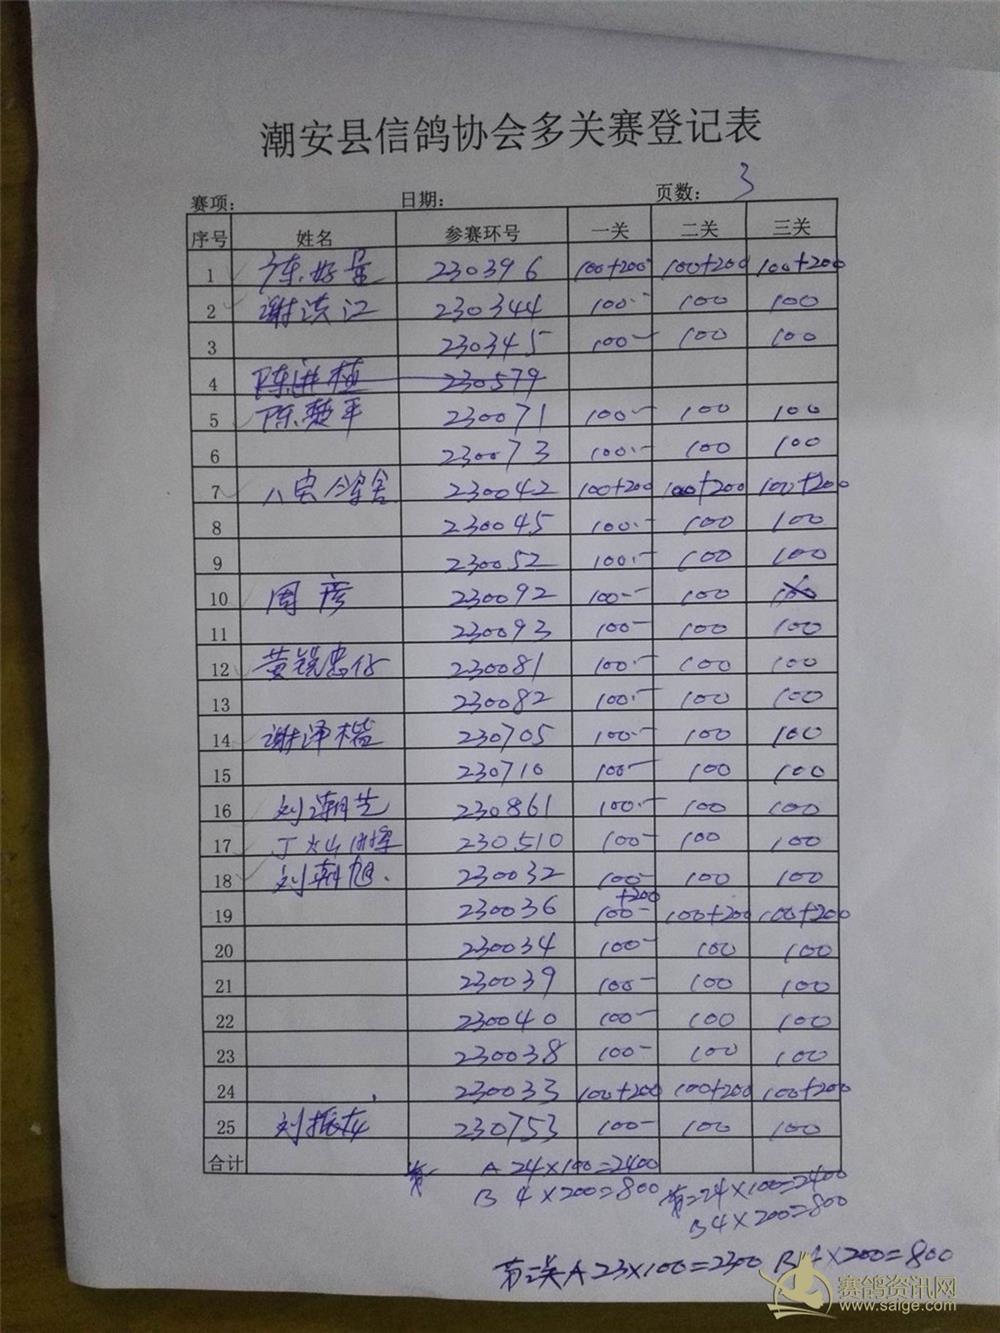 潮安县信鸽协会多关赛登记表
赛项： 日期： 页数： 3
序号 姓名 参赛环号 一关 二关 三关
1 230396 100+200 100+200 100+200
2 谢洪江 230344 100.- 100 100
3 230345 100- 100 100
4 陈进植 230579
5 陈楚平 230071 100.- 100 100
6 230073 100.- 100 100
7 230042 100+200 100+200 100+200
8 230045 100.- 100 100
9 230052 100.- 100 100
10 周彦 230092 100.- 100 100
11 230093 100- 100 100
12 黄锐忠仔 230081 100.- 100 100
13 230082 100.- 100 100
14 谢泽楷 230705 100.- 100 100
15 230710 100.- 100 100
16 刘潮芝 230861 100.- 100 100
17 230510 100- 100 100
18 刘朝旭 230032 100- 100 100
19 230036 100-+200 100+200 100+200
20 230034 100- 100 100
21 230039 100- 100 100
22 230040 100- 100 100
23 230038 100- 100 100
24 230033 100+200 100+200 100+200
25 刘振友 230753 100- 100 100
合计 第一 A 24×100=2400
B 4×200=800 第二=24×100=2400
B4×200=800
第三关A 23×100=2300 B4×200=800
赛鸽资讯网
www.saige.com